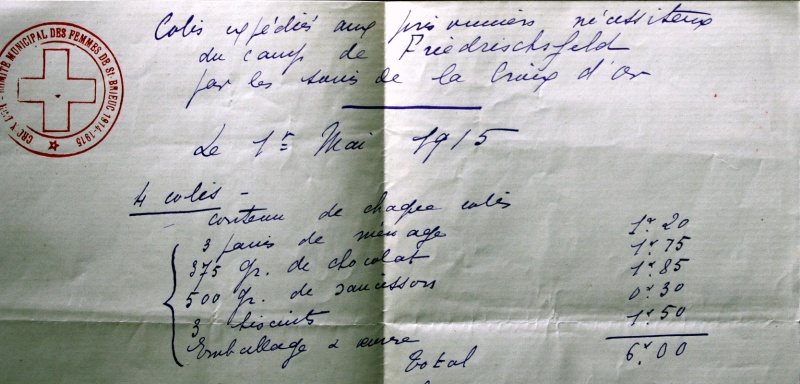 COMITÉ MUNICIPAL DES FEMMES DE St BRIEUC 1914-1915
Colis expédiés aux prisonniers nécessiteux
du camp de Friedrischsfeld
par les soins de la Croix d'or
Le 1er Mai 1915
4 colis -
contenu de chaque colis
3 pains de ménage 1f.20
375 gr. de chocolat 1f.75
500 gr. de saucissons 1f.85
3 biscuits 0f.30
Emballage 1f.50
Total 6f.00